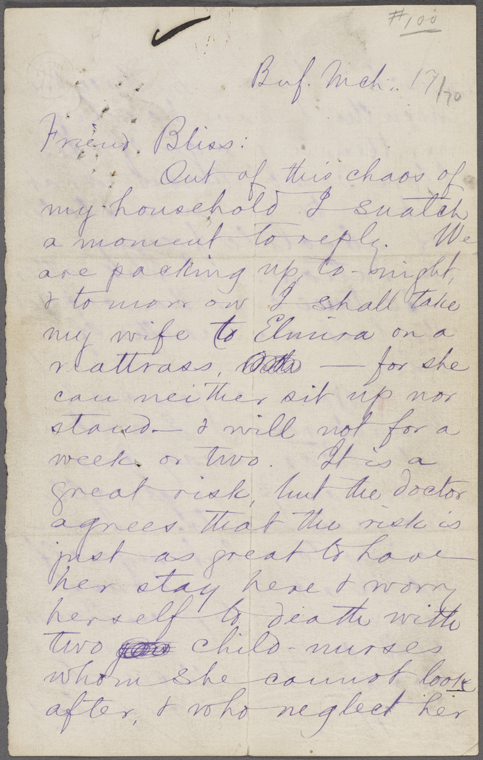 #100
Buf. Mch.. 17/70
Friend Bliss:
Out of this chaos of
my household I snatch
a moment to reply. We
are packing up, to-night,
& tomorrow I shall take
my wife to Elmira on a
mattrass, — for she
can neither sit up nor
stand — & will not for a
week or two. It is a
great risk, but the doctor
agrees that the risk is
just as great to have
her stay here & worry
herself to death with
two child-nurses
whom she cannot look
after, & who neglect her